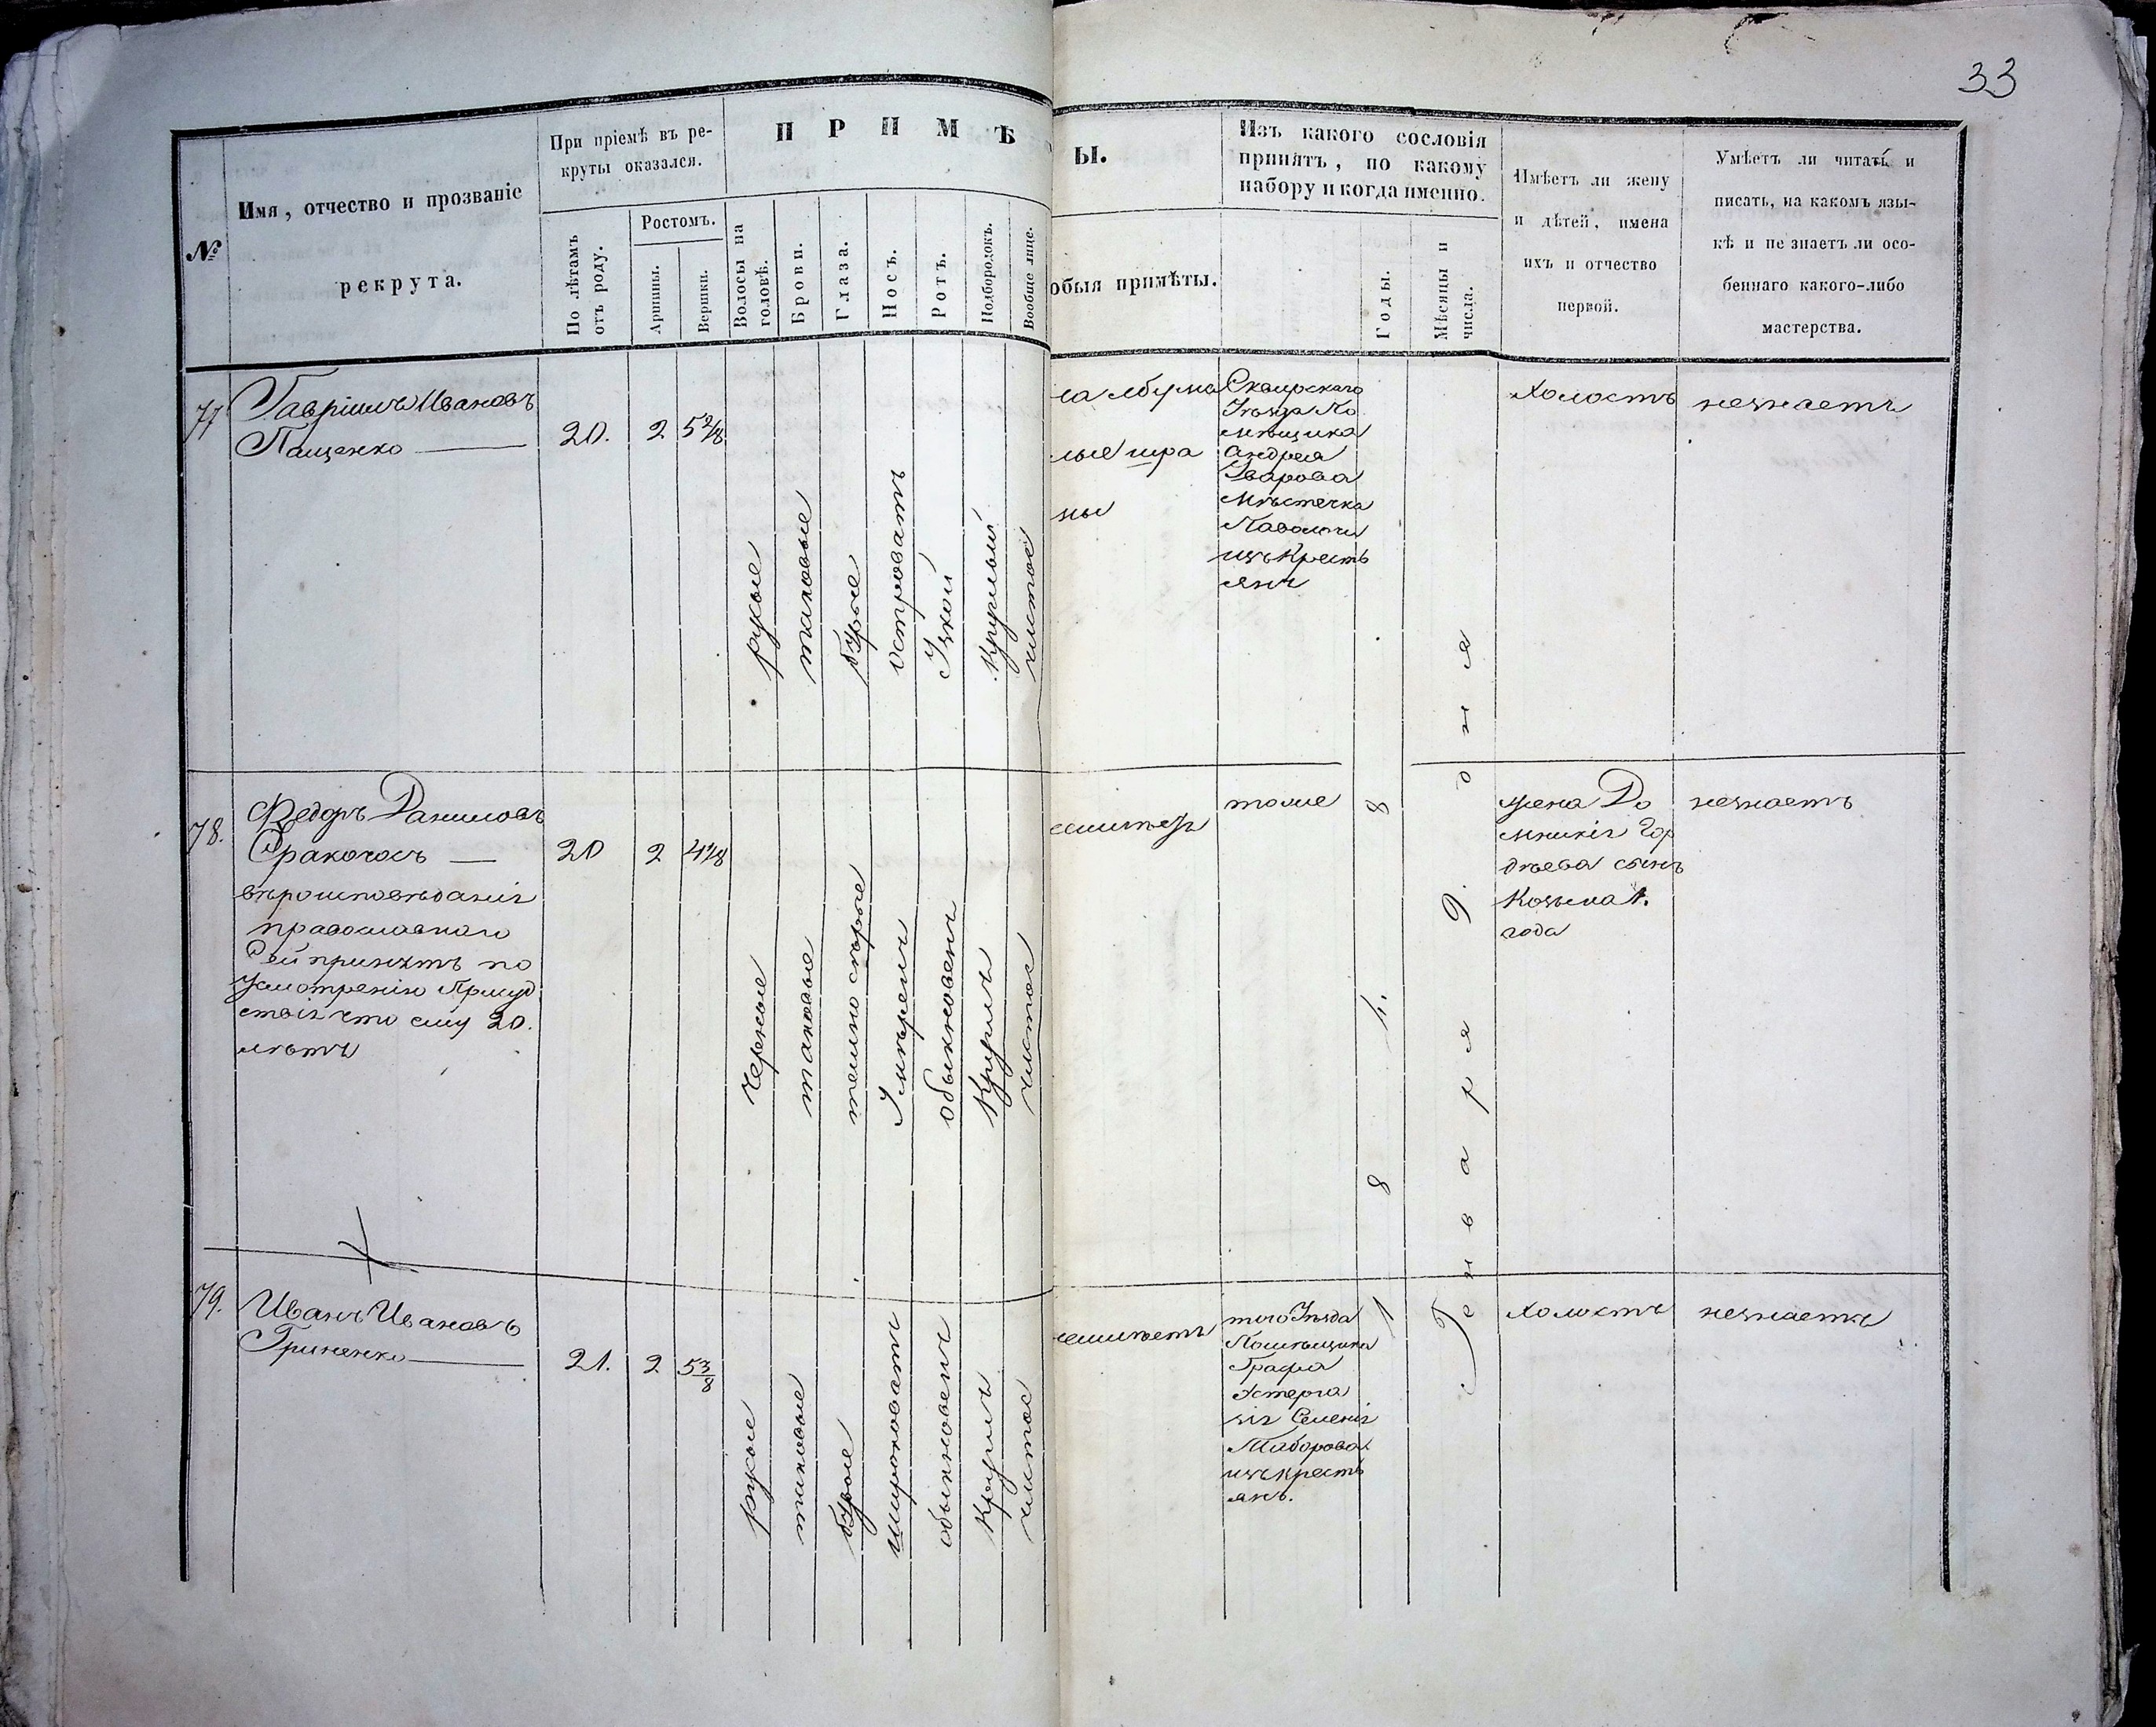 33
№
Имя, отчество и прозваніе
рекрута.
При пріемѣ въ ре-
круты оказался.
По лѣтамъ
отъ роду.
Ростомъ.
Аршины.
Вершки.
П Р И М Ѣ
Волосы на
головѣ.
Брови.
Глаза.
Носъ.
Ротъ.
Подбородокъ.
Вообще лице.
Ы.
обыя примѣты.
Изъ какого сословія
принятъ, по какому
набору и когда именно.
Годы.
Мѣсяцы и
числа.
Имѣетъ ли жену
и дѣтей, имена
ихъ и отчество
первой.
Умѣетъ ли читать и
писать, на какомъ язы-
кѣ и не знаетъ ли осо-
беннаго какого-либо
мастерства.
77
Гавріилъ Ивановъ
Пащенко
20.
2
5 2/8
русые
таковые
бурые
островатъ
Узкой
Круглый
чистое
на лбу
ны
Сквирскаго
Уѣзда По
мѣщика
Андрея
Мѣстечка
Паволочи
изъ Кресть
янъ
Холостъ
незнаетъ
78.
Федоръ Даниловъ
вѣроисповѣданія
православнаго
Сей принятъ по
Усмотренію Присуд
ствія что ему 20.
лѣтъ
20
2
4 1/8
Черные
таковые
темно серые
Умѣренъ
обыкновенъ
Круглъ
чистое
тоже
жена До
мникія Гор
дѣева сынъ
Козьма 1.
года
незнаетъ
79.
Иванъ Ивановъ
Гриненко
21.
2
5 3/8
русые
таковые
бурые
широковатъ
обыкновенъ
Круглъ
чистое
того Уѣзда
Помѣщика
Графа
Эстерга
зія Селенія
Таборова
изъ крестъ
янъ.
1 8 4. 8
Генваря 9. дня
Холостъ
незнаетъ